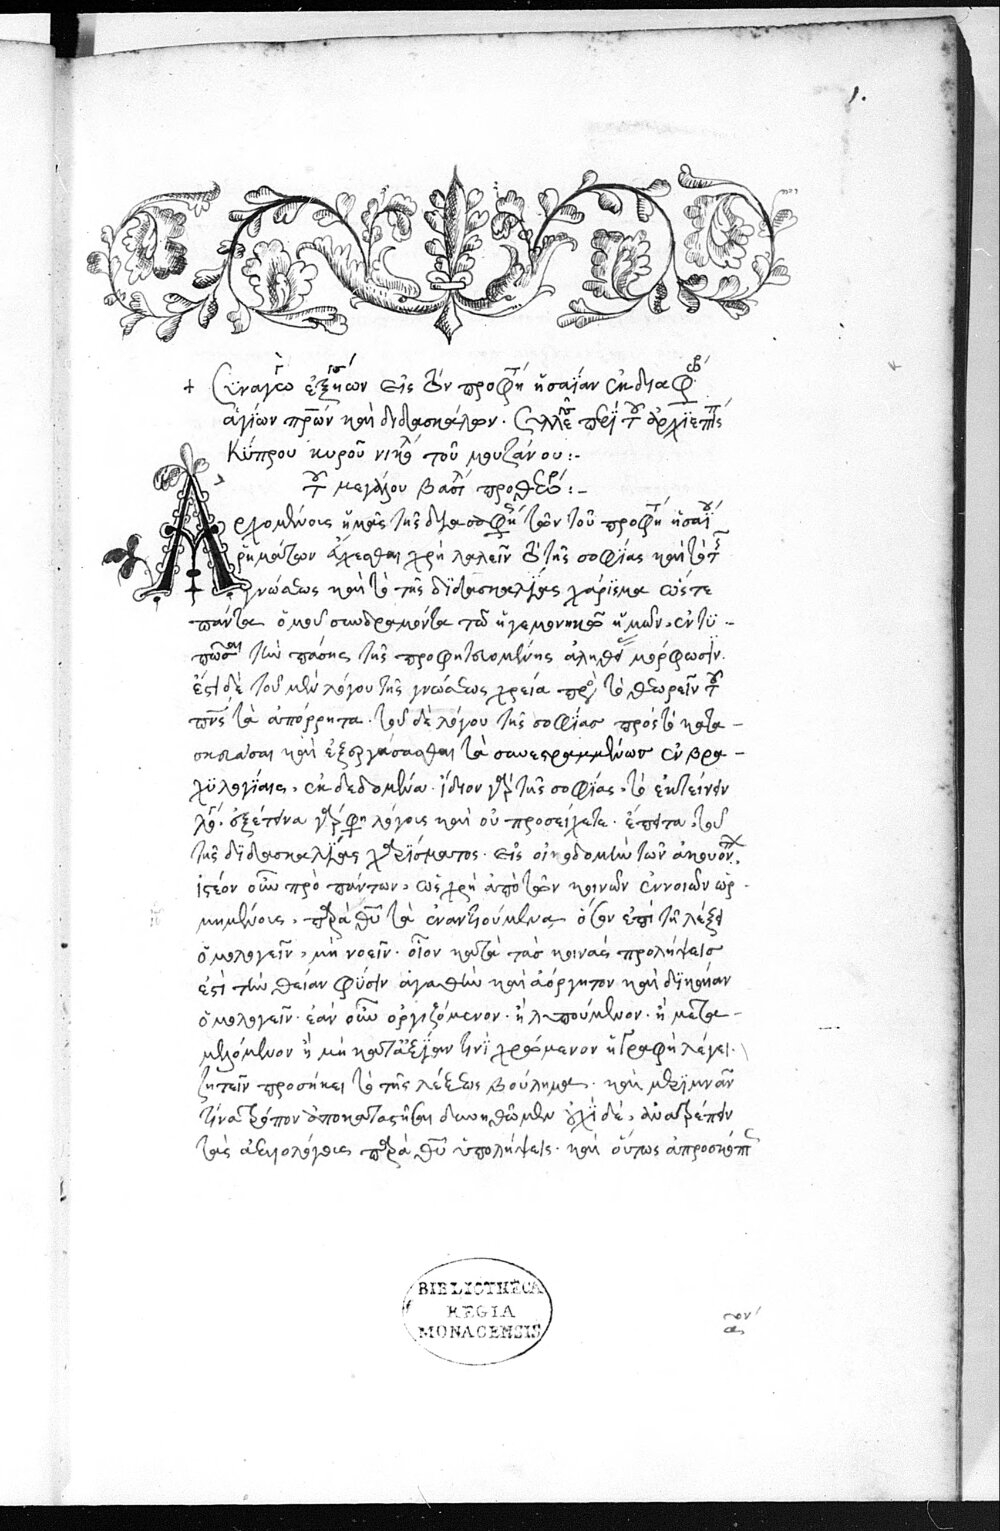 1.
+ Συναγωγὴ ἐξηγήσεων εἰς τὸν προφήτην ἡσαΐαν ἐκ διαφόρων
ἁγίων πατέρων καὶ διδασκάλων. συλλεγεῖσα παρὰ τοῦ ἀρχιεπισκόπου
Κύπρου κυροῦ νικολάου τοῦ μουζάνου:-
τοῦ μεγάλου βασιλείου
Ἀρχομένοις ἡμᾶς τῆς τῶν τοῦ προφήτου ἡσαΐου
ῥημάτων χρὴ λαλεῖν τῆς σοφίας καὶ τὸ τῆς
γνώσεως καὶ τὸ τῆς διδασκαλίας χάρισμα ὥστε
πάντα ὁμοῦ συνδραμόντα τῷ ἡγεμονικῷ ἡμῶν, ἐντυ-
τὴν πάσης τῆς προφητευομένης μόρφωσιν.
ἔστι δὲ τοῦ μὲν λόγου τῆς γνώσεως χρεία πρὸς τὸ θεωρεῖν τοῦ
πνεύματος τὰ ἀπόρρητα. τοῦ δὲ λόγου τῆς σοφίας πρὸς τὸ κατα-
σκευάσαι καὶ ἐξεργάσασθαι τὰ συνεσπραμμένως ἐν βρα-
χυλογίαις, ἐκδεδομένα. ἴδιον γὰρ τῆς σοφίας, τὸ ἐκτείνειν
λόγους. ἐξέτεινα γάρ φησι λόγους καὶ οὐ προσείχετε. ἔπειτα, τοῦ
τῆς διδασκαλίας χαρίσματος. εἰς οἰκοδομὴν τῶν ἀκουόντων.
ἰστέον οὖν πρὸ πάντων, ὡς χρὴ ἀπὸ τῶν κοινῶν ἐννοιῶν ὡρ-
μημένοις, περὶ θεοῦ τὰ ἐναντιούμενα ἐπὶ τῇ λέξει
ὁμολογεῖν, μὴ νοεῖν. οἷον κατὰ τὰς κοινὰς προλήψεις
ἐστὶ τὴν θείαν φύσιν ἀγαθὴν καὶ ἀόργητον καὶ δικαίαν
ὁμολογεῖν. ἐὰν οὖν ὀργιζόμενον. ἢ λυπούμενον. ἢ μετα-
μελόμενον ἢ μὴ κατ' ἀξίαν τινὶ χρώμενον ἡ Γραφὴ λέγει.
ζητεῖν προσήκει τὸ τῆς λέξεως βούλημα. καὶ μεριμνᾶν
τίνα τρόπον ἀποκαταστῆσαι δυνηθῶμεν οὐχὶ δὲ, ἀνατρέπειν
τὰς ἀξιολόγους περὶ θεοῦ ὑπολήψεις. καὶ οὕτως
BIBLIOTHECA
REGIA
MONACENSIS